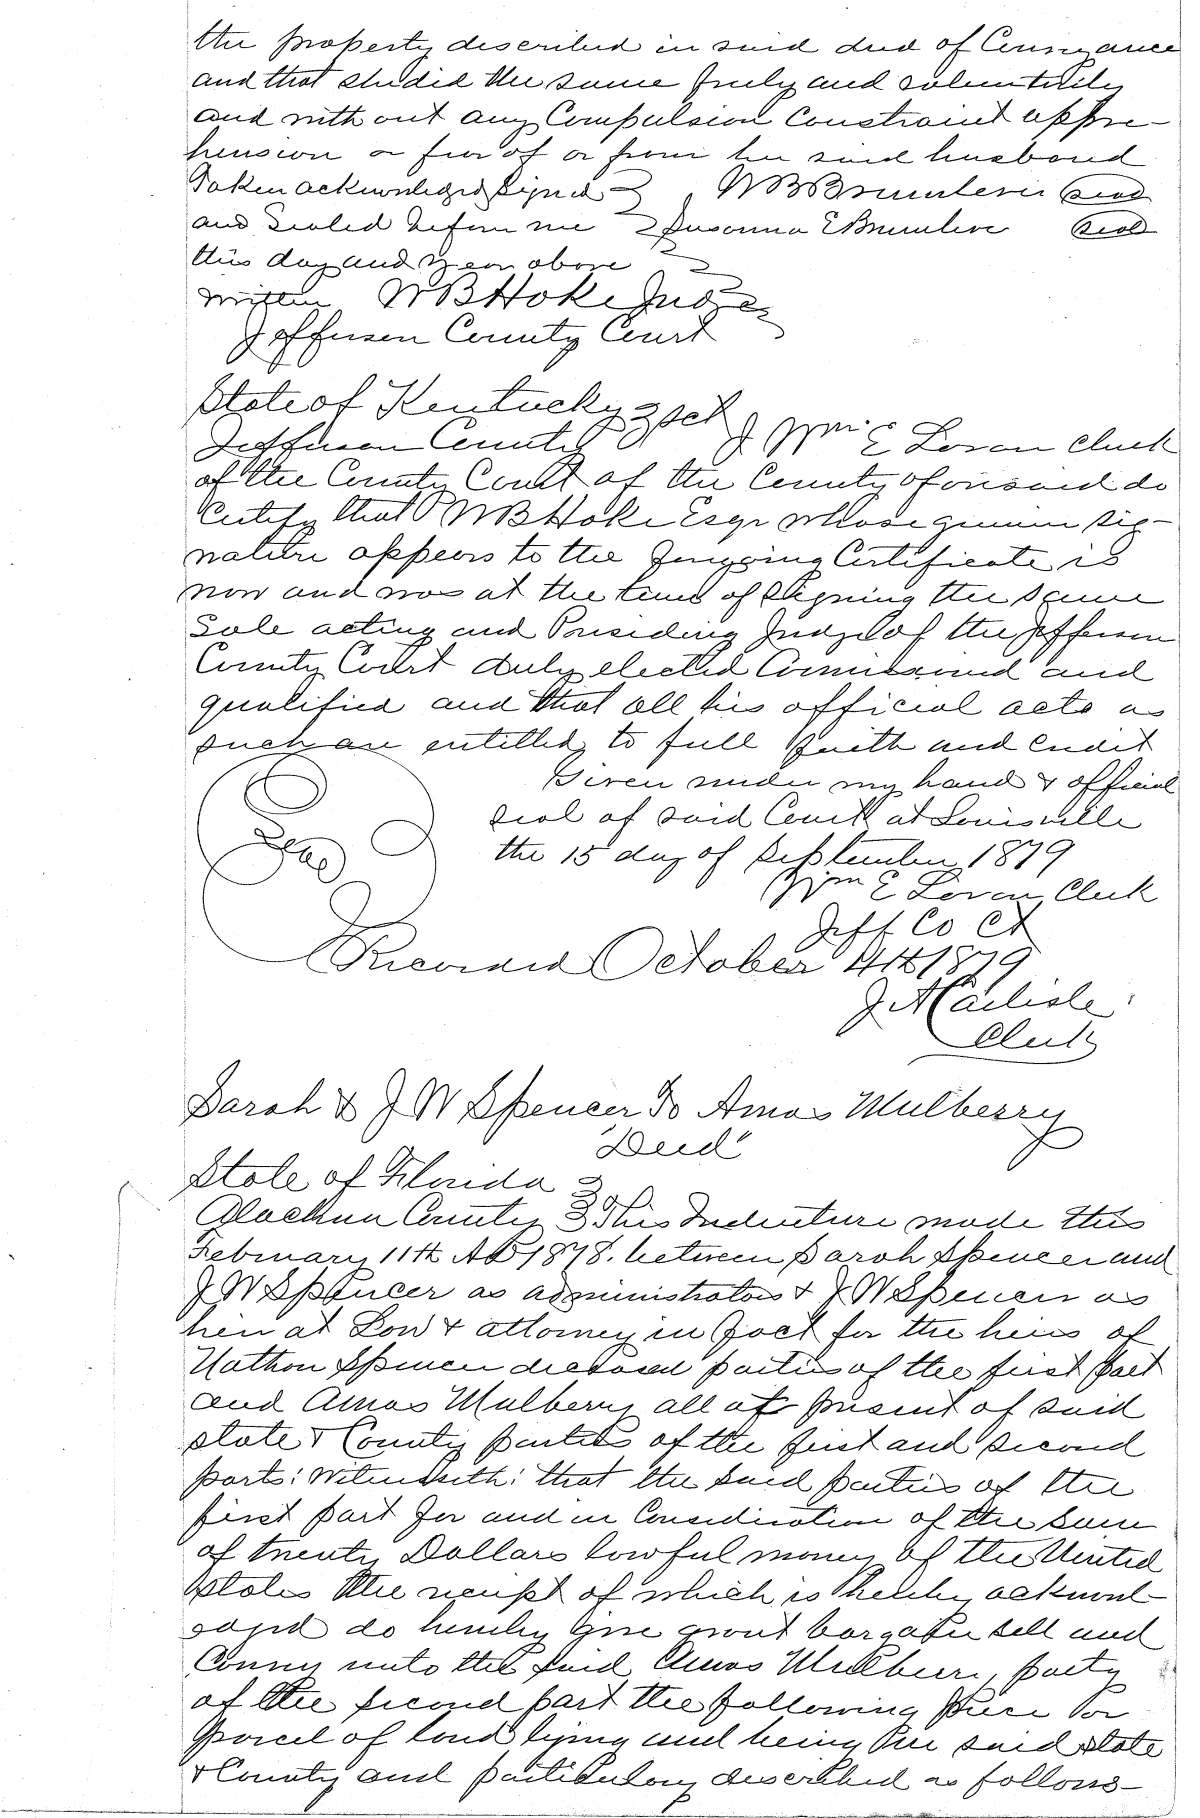 the property described in said deed of Conveyance
and that she did the same freely and voluntarily
and without any Compulsion Constraint appre-
hension or fear of or from her said husband
Taken acknowledged signed W B Seal
and Sealed before me Susanna E Seal
this day and year above
written W B Hoke Judge
Jefferson County Court
State of Kentucky Sct
Jefferson County I Wm E Clerk
of the County Court of the County aforesaid do
Certify that W B Hoke Esqr whose genuine sig-
nature appears to the foregoing Certificate is
now and was at the time of signing the same
Sole acting and Presiding Judge of the Jefferson
County Court duly elected Commissioned and
qualified and that all his official acts as
such are entitled to full faith and credit
Given under my hand & official
seal of said Court at Louisville
Seal
the 15 day of September 1879
Wm E Clerk
Jeff Co Ct
Recorded October 4th 1879
J A Carlisle
Clerk
Sarah & J W Spencer To Amos Mulberry
"Deed"
State of Florida
Alachua County This Indenture made this
February 11th AD 1878. between Sarah Spencer and
J W Spencer as administrators & J W Spencer as
heir at Law & attorney in fact for the heirs of
Nathan Spencer deceased parties of the first part
and Amos Mulberry all at present of said
state & County parties of the first and second
parts: Witnesseth: that the said parties of the
first part for and in Consideration of the sum
of twenty Dollars lawful money of the United
States the receipt of which is hereby acknowl-
edged do hereby give grant bargain sell and
Convey unto the said Amos Mulberry party
of the second part the following piece or
parcel of land lying and being in said state
& County and particulary described as follows-